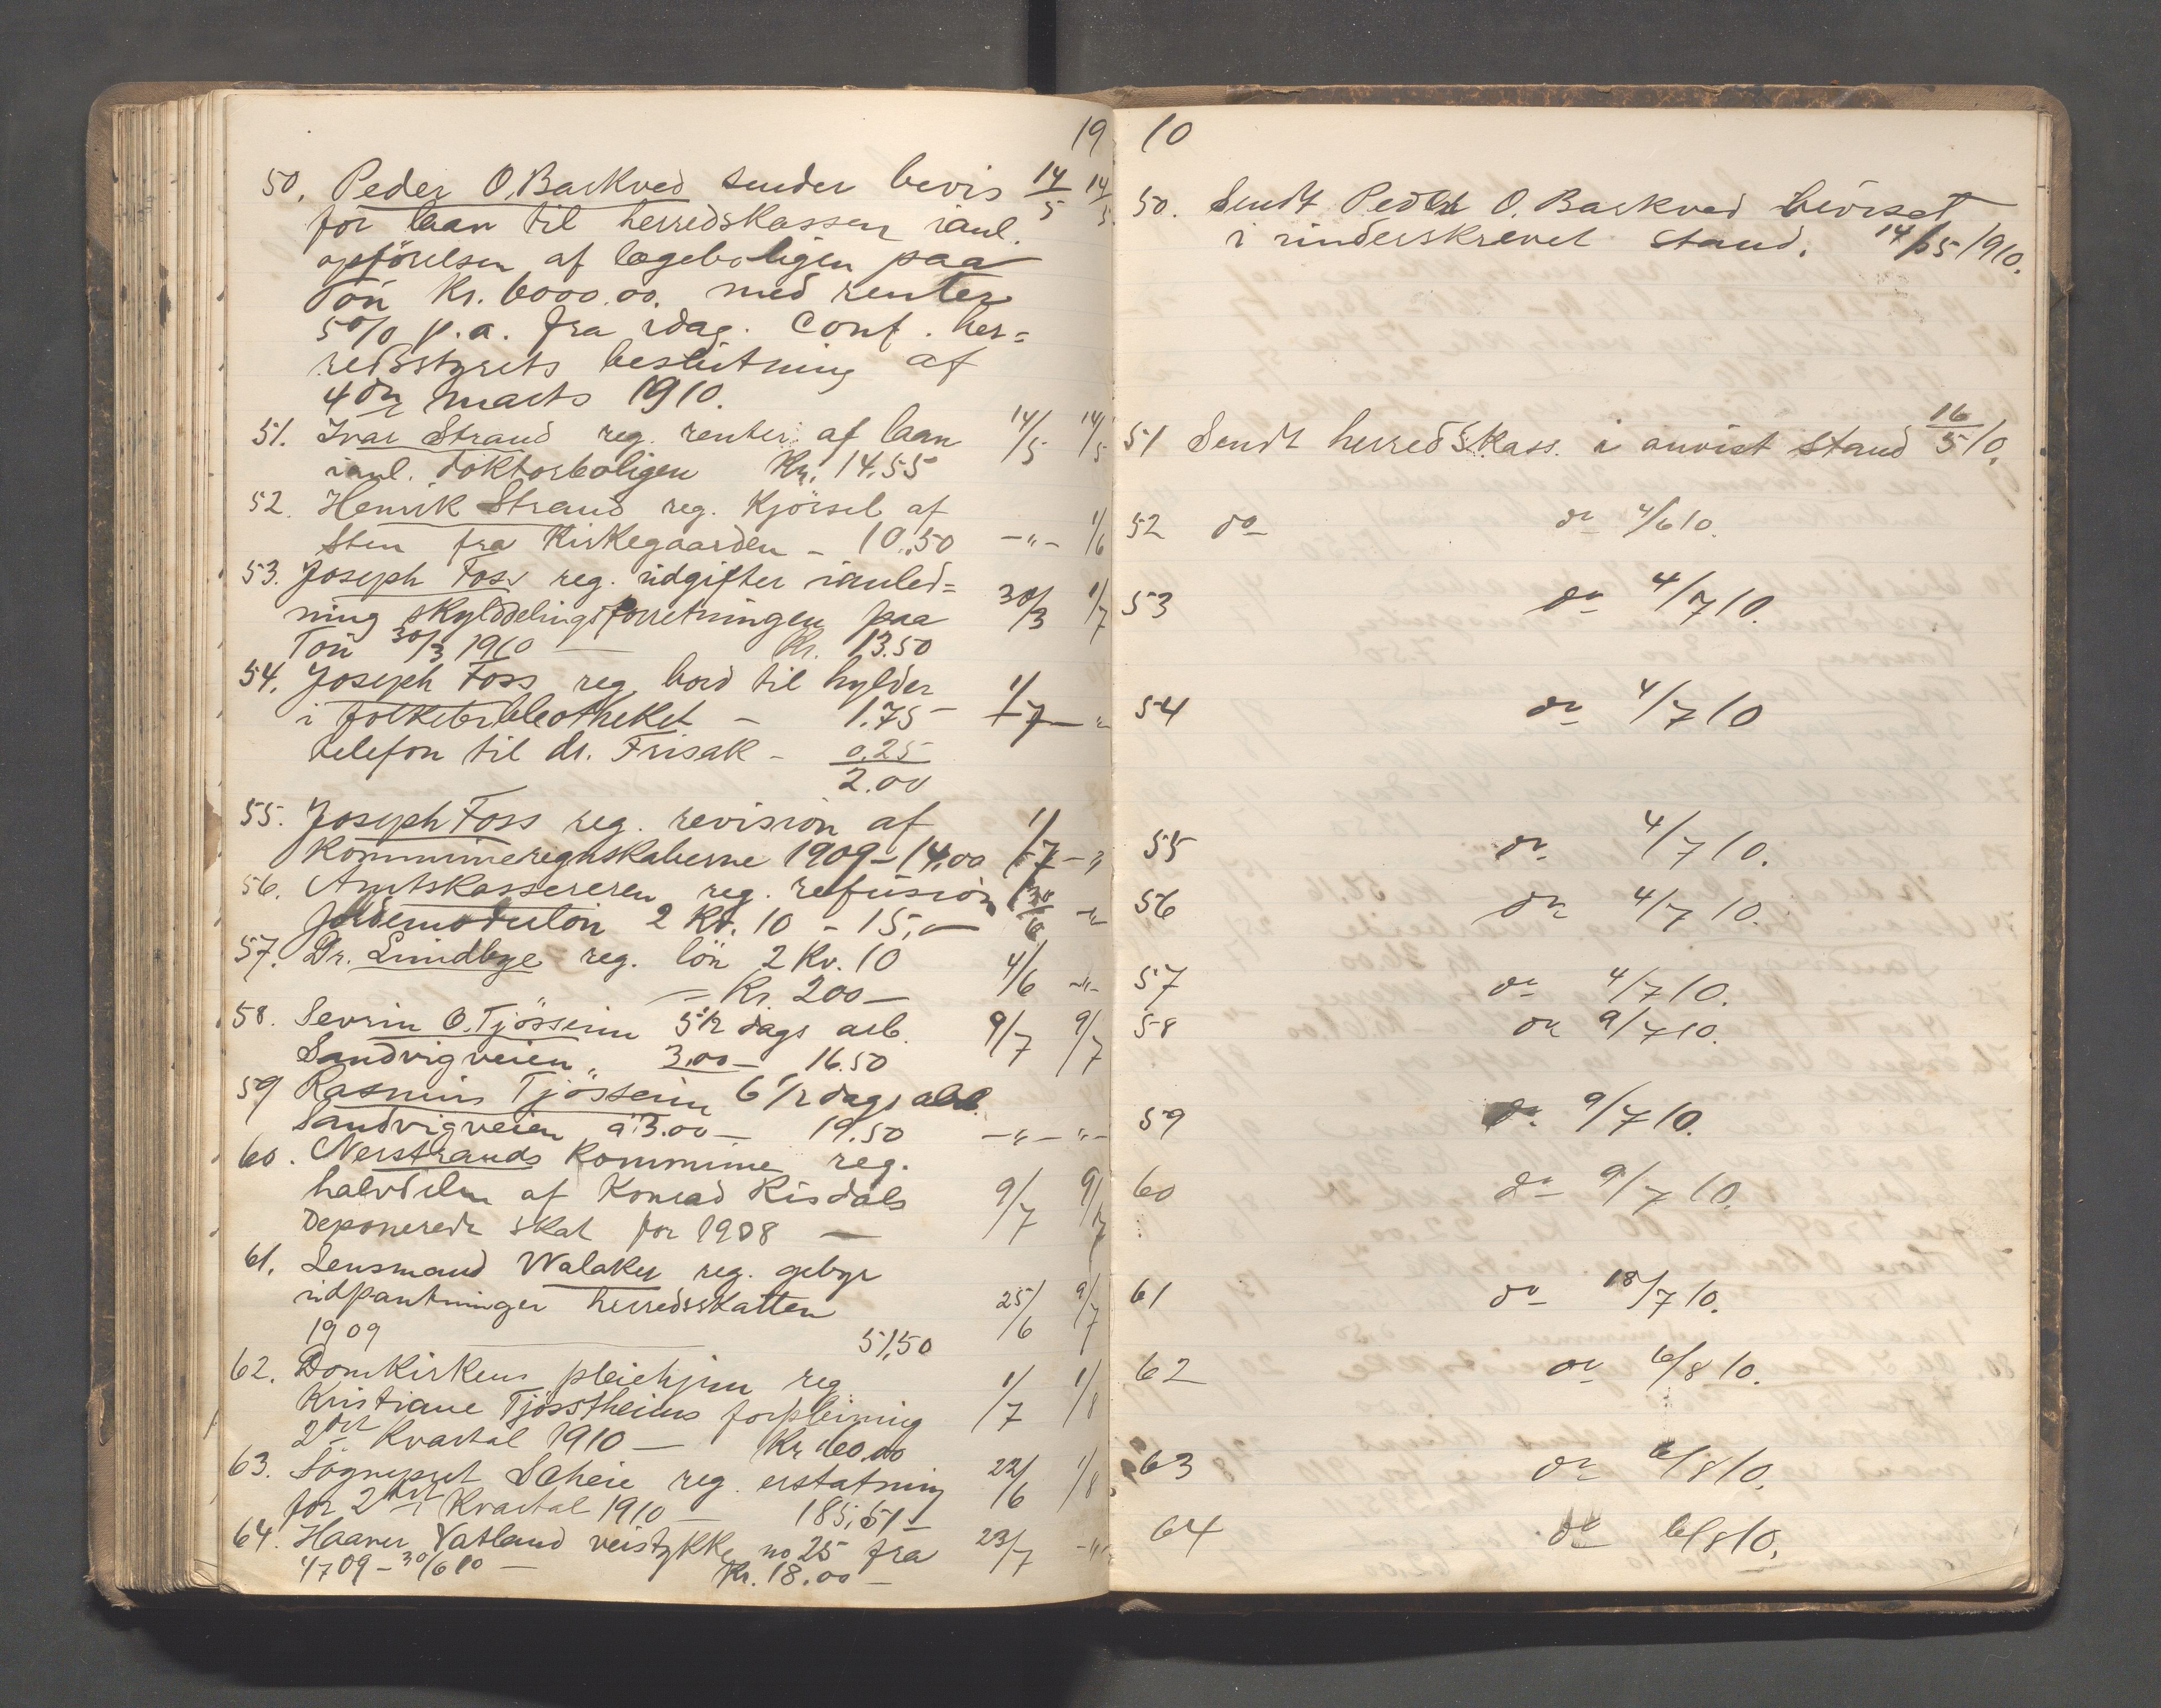 19
50. Peder O. Barkved sender bevis 14/5 14/5
for laan til herredskassen ianl.
opførelsen af lægeboligen paa
Tøn Kr. 6000.00. med renter
5% p.a. fra idag. Conf. her=
redsstyrets beslutning af
4de marts 1910.
51. Ivar Strand reg. renter af laan 14/5 14/5
ianl. doktorboligen Kr. 14.55
52. Henrik Strand reg. Kjörsel af
Sten fra Kirkegaarden - 10.50 -"- 1/6
53. Joseph Foss reg. udgifter ianled=
ning skylddelingsforretningen paa 30/3 1/7
Tön 30/3 1910 — Kr. 13.50
54. Joseph Foss reg. bord til hylder 1/7
i folkebibliotheket - 1.75 - "
telefon til dr. Frisak - 0.25
2.00
55. Joseph Foss reg. revision af 1/7
Kommuneregnskaberne 1909 - 14.00 - "
56. Amtskassereren reg. refusion 30/6
Jordemoderlön 2 Kv. 10 - 15,— -"-
57. Dr. Lindbye reg. lön 2 Kv. 10 4/6 -"-
— Kr. 200 —
58. Sevrin O. Tjössem 5 1/2 dags arb. 9/7 9/7
Sandvigveien " 3.00 — 16.50
59 Rasmus Tjössem 6 1/2 dags arb.
Sandvigveien á 3.00 — 19.50 -"- "-
60. Nerstrands Kommune reg.
halvdelen af Konrad Risdals 9/7 9/7
Deponerede skat for 1908 —
61. Lensmand Walaker reg. gebyr
udpantninger herredsskatten 25/6 9/7
1909 — 51,50
62. Domkirkens pleiehjem reg
Kristiane Tjösstheims forpleining 1/7 1/8
2det Kvartal 1910 — Kr. 60.00
63. Sogneprst Scheie reg. erstatning 22/6 1/8
for 2det Kvartal 1910 — 185,51 -
64. Haaver Vatland veistykke no 25 fra 23/7 -"-
1/7 09 - 30/6 10 — Kr. 18.00 —
10
50. Sendt Peder O. Barkved beviset
i underskrevet stand. 14/5 1910.
51 Sendt herredskass. i anvist stand 16/5 10.
52 do do 4/6 10.
53 do 4/7 10.
54 do 4/7 10
55 do 4/7 10.
56 do 4/7 10.
57 do 4/7 10.
58 do 9/7 10.
59 do 9/7 10.
60 do 9/7 10.
61 do 18/7 10.
62 do 6/8 10.
63 do 6/8 10.
64 do 6/8 10.